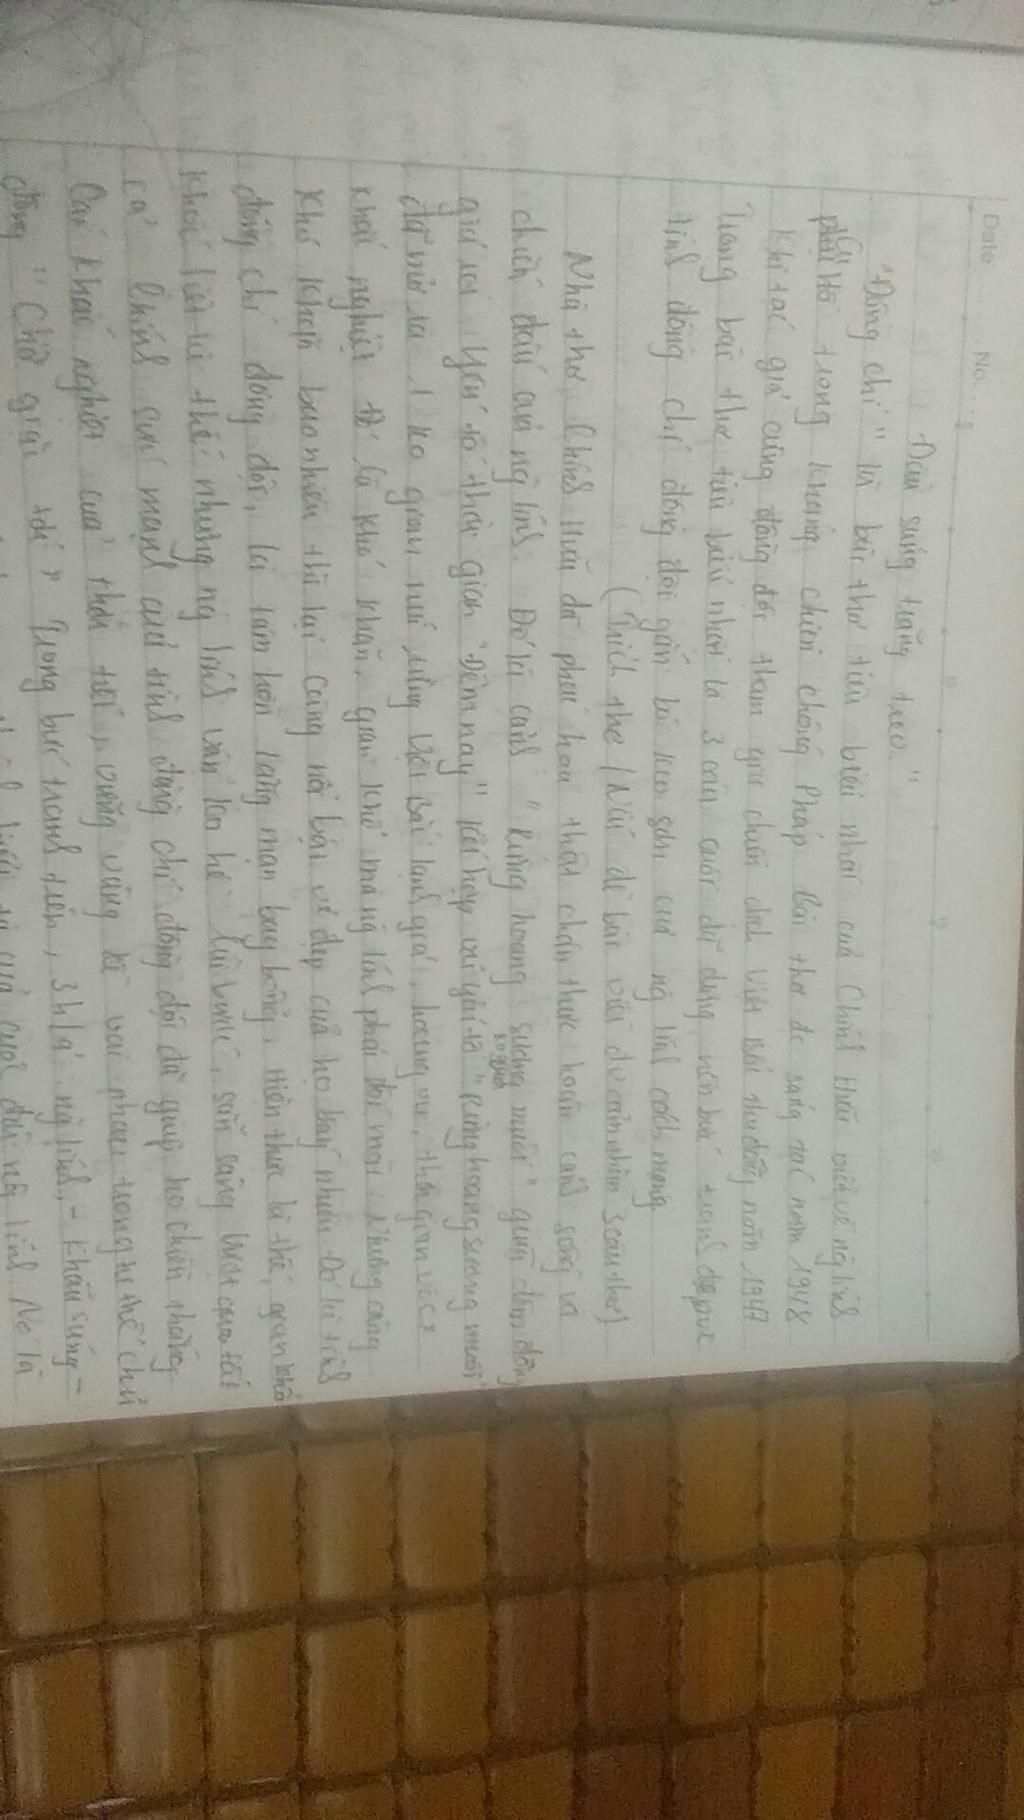 Date No.
Đầu súng trăng treo."
"Đồng chí" là bài thơ tiêu biểu nhất của Chính Hữu viết về ng lính
Cụ Hồ trong kháng chiến chống Pháp Bài thơ đc sáng tác năm 1948
khi tác giả cùng đồng đội tham gia chiến dịch Việt Bắc thu đông năm 1947
Trong bài thơ tiêu biểu nhất là 3 câu cuối đã dựng nên bức tranh đẹp về
tình đồng chí đồng đội gắn bó keo sơn của ng lính cách mạng
(Trích thơ / Nếu đề bài viết đv cảm nhận 3 câu thơ)
Nhà thơ Chính Hữu đã phác hoạ thật chân thực hoàn cảnh sống và
chiến đấu của ng lính. Đó là cảnh "Rừng hoang sương muối" giữa đêm đông
giá rét Yếu tố thời gian "Đêm nay" kết hợp với yếu tố không gian "Rừng hoang sương muối"
đã mở ra 1 ko gian núi rừng Việt Bắc lạnh giá, hoang vu, thời gian
khắc nghiệt Đó là khó khăn, gian khổ mà ng lính phải đối mặt Nhưng càng
khó khăn bao nhiêu thì lại càng nổi bật vẻ đẹp của họ bấy nhiêu Đó là tình
đồng chí đồng đội, là tâm hồn lãng mạn bay bổng. Hiện thực là thế, gian khổ
khốc liệt là thế nhưng ng lính vẫn sẵn sàng
cả Chính sức mạnh của tình đồng chí đồng đội đã giúp họ chiến thắng
cái khắc nghiệt của thời tiết, vững vàng kề vai nhau trong tư thế chủ
động "Chờ giặc tới" Trong bức tranh trên, 3 h/ả: ng lính - khẩu súng -
của cuộc đời ng lính Nó là